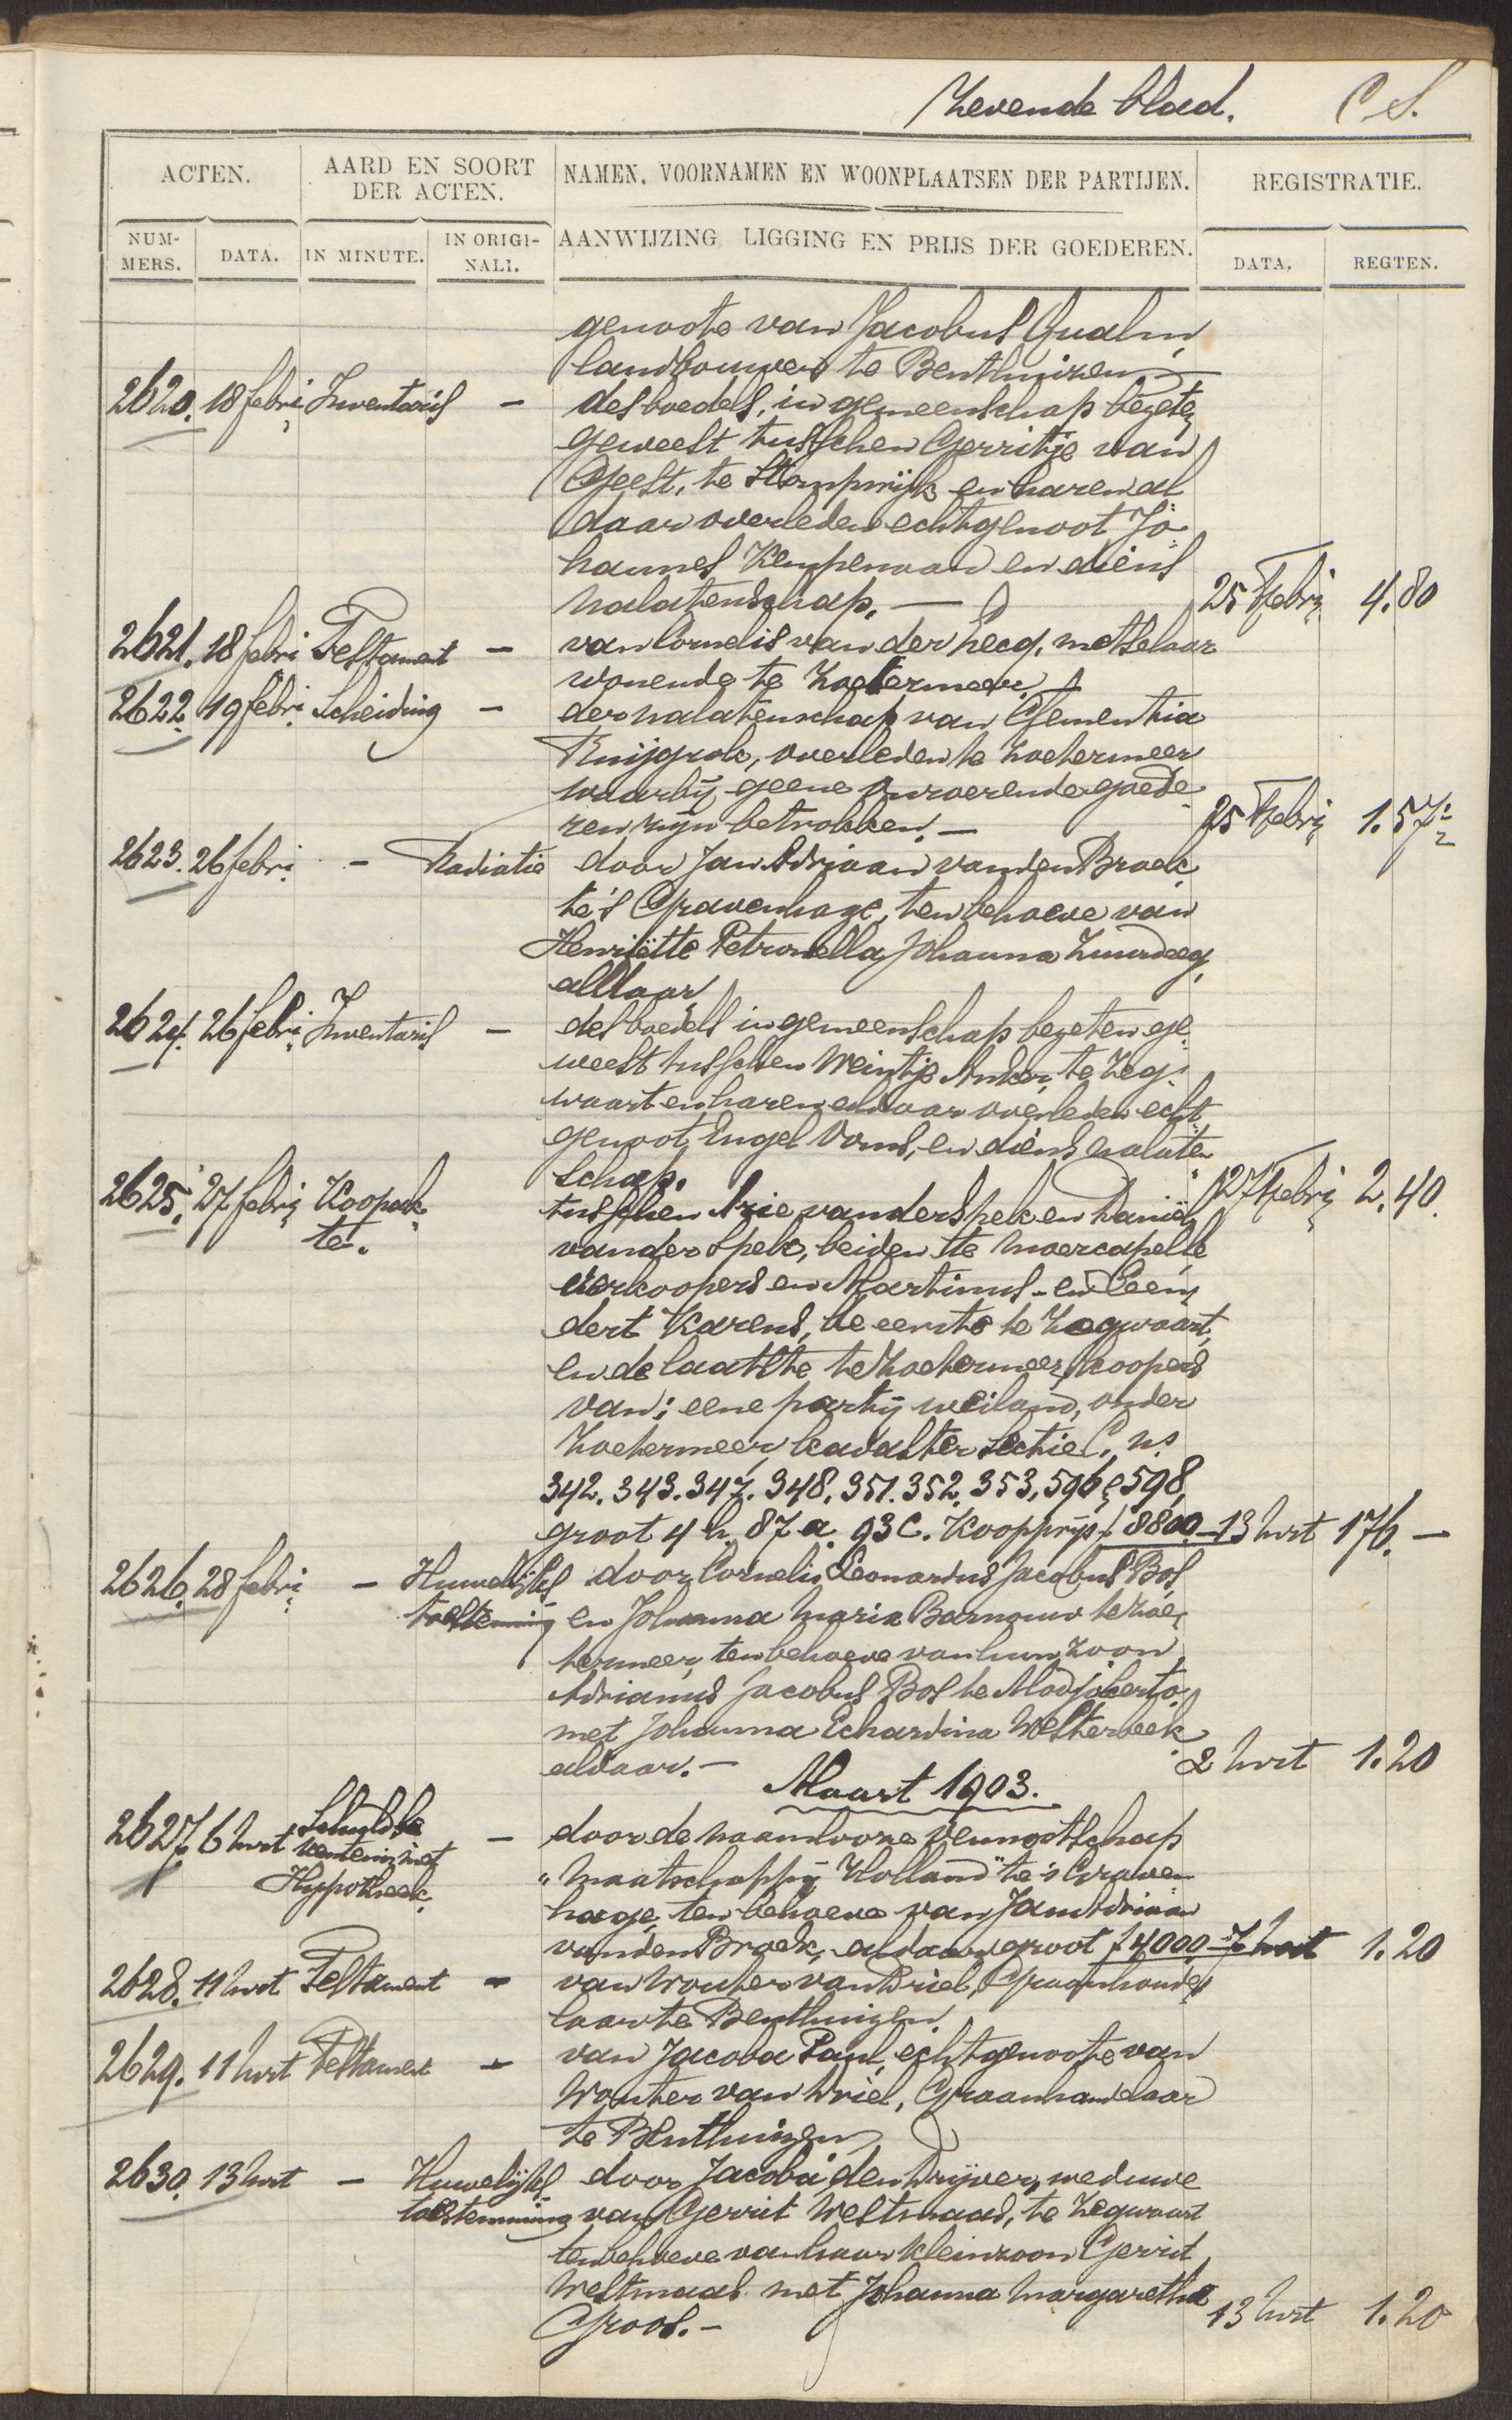 Zevende blad. C S.
ACTEN. AARD EN SOORT DER ACTEN. NAMEN, VOORNAMEN EN WOONPLAATSEN DER PARTIJEN. REGISTRATIE.
NUM-MERS. DATA. IN MINUTE. IN ORIGI-NALI. AANWIJZING LIGGING EN PRIJS DER GOEDEREN. DATA. REGTEN.
genoote van Jacobus Qualm,
landbouwer te Benthuizen. —
2620. 18 febri Inventaris — des boedels, in gemeenschap bezeten
geweest tusschen Gerritje van
Geest, te Stompwijk en haren al
daar overleden echtgenoot Jo
hannes Kempenaar en diens
nalatenschap. — 25 Febri 4.80
2621. 18 febri Testament — van Cornelis van der Hecq, metselaar
wonende te Zoetermeer. —
2622. 19 febri Scheiding — der nalatenschap van Clementia
Ruijgrok, overleden te Zoetermeer
waarbij geene onroerende goede
ren zijn betrokken. — 25 Febri 1.57
2623. 26 febri — Radiatie door Jan Adriaan van den Broek
te 's Gravenhage, ten behoeve van
Henriëtte Petronella Johanna Zuurdeeg,
aldaar
2624. 26 febri Inventaris — des boedels in gemeenschap bezeten ge
weest tusschen Weintje Anker, te Zeg
waart en haren aldaar overleden echt
genoot Engel Vons, en diens nalaten
schap. 27 Febri 2.40
2625. 27 febri Koopak tusschen Arie van der Spek en Daniël
te. van der Spek, beiden te Moercapelle
verkoopers en Martinus- en Leen
dert Karens, de eerste te Zegwaart,
en de laatste te Zoetermeer, koopers
van: eene partij weiland, onder
Zoetermeer, kadaster sectie C, ns
342. 343. 347. 348. 351. 352. 353, 596 & 598,
groot 4 h. 87 a. 93 c. Koopprijs f 8800 — 13 Mrt 176. —
2626. 28 febri — Huwelijks door Cornelis Leonardus Jacobus Bos
toestemming en Johanna Maria Barnouw te Zoe
termeer, ten behoeve van hun zoon
Adrianus Jacobus Bos te Modjokerto,
met Johanna Echardina Westerbeek
aldaar. — 2 Mrt 1.20
Maart 1903.
2627. 6 Mrt Schuldbe — door de naamlooze vennootschap
kentenis met "Maatschappij Holland" te 's Graven
Hypotheek. hage, ten behoeve van Jan Adriaan
van den Broek, aldaar groot f 4000 — 7 Mrt 1.20
2628. 11 Mrt Testament — van Wouter van Driel, Graanhande
laar te Benthuizen.
2629. 11 Mrt Testament — van Jacoba Paul, echtgenoote van
Wouter van Driel, Graanhandelaar
te Benthuizen
2630. 13 Mrt — Huwelijks door Jacoba den Drijver, weduwe
toestemming van Gerrit Westmaas, te Zegwaart
ten behoeve van haar kleinzoon Gerrit
Westmaas met Johanna Margaretha
Groos. — 13 Mrt 1.20